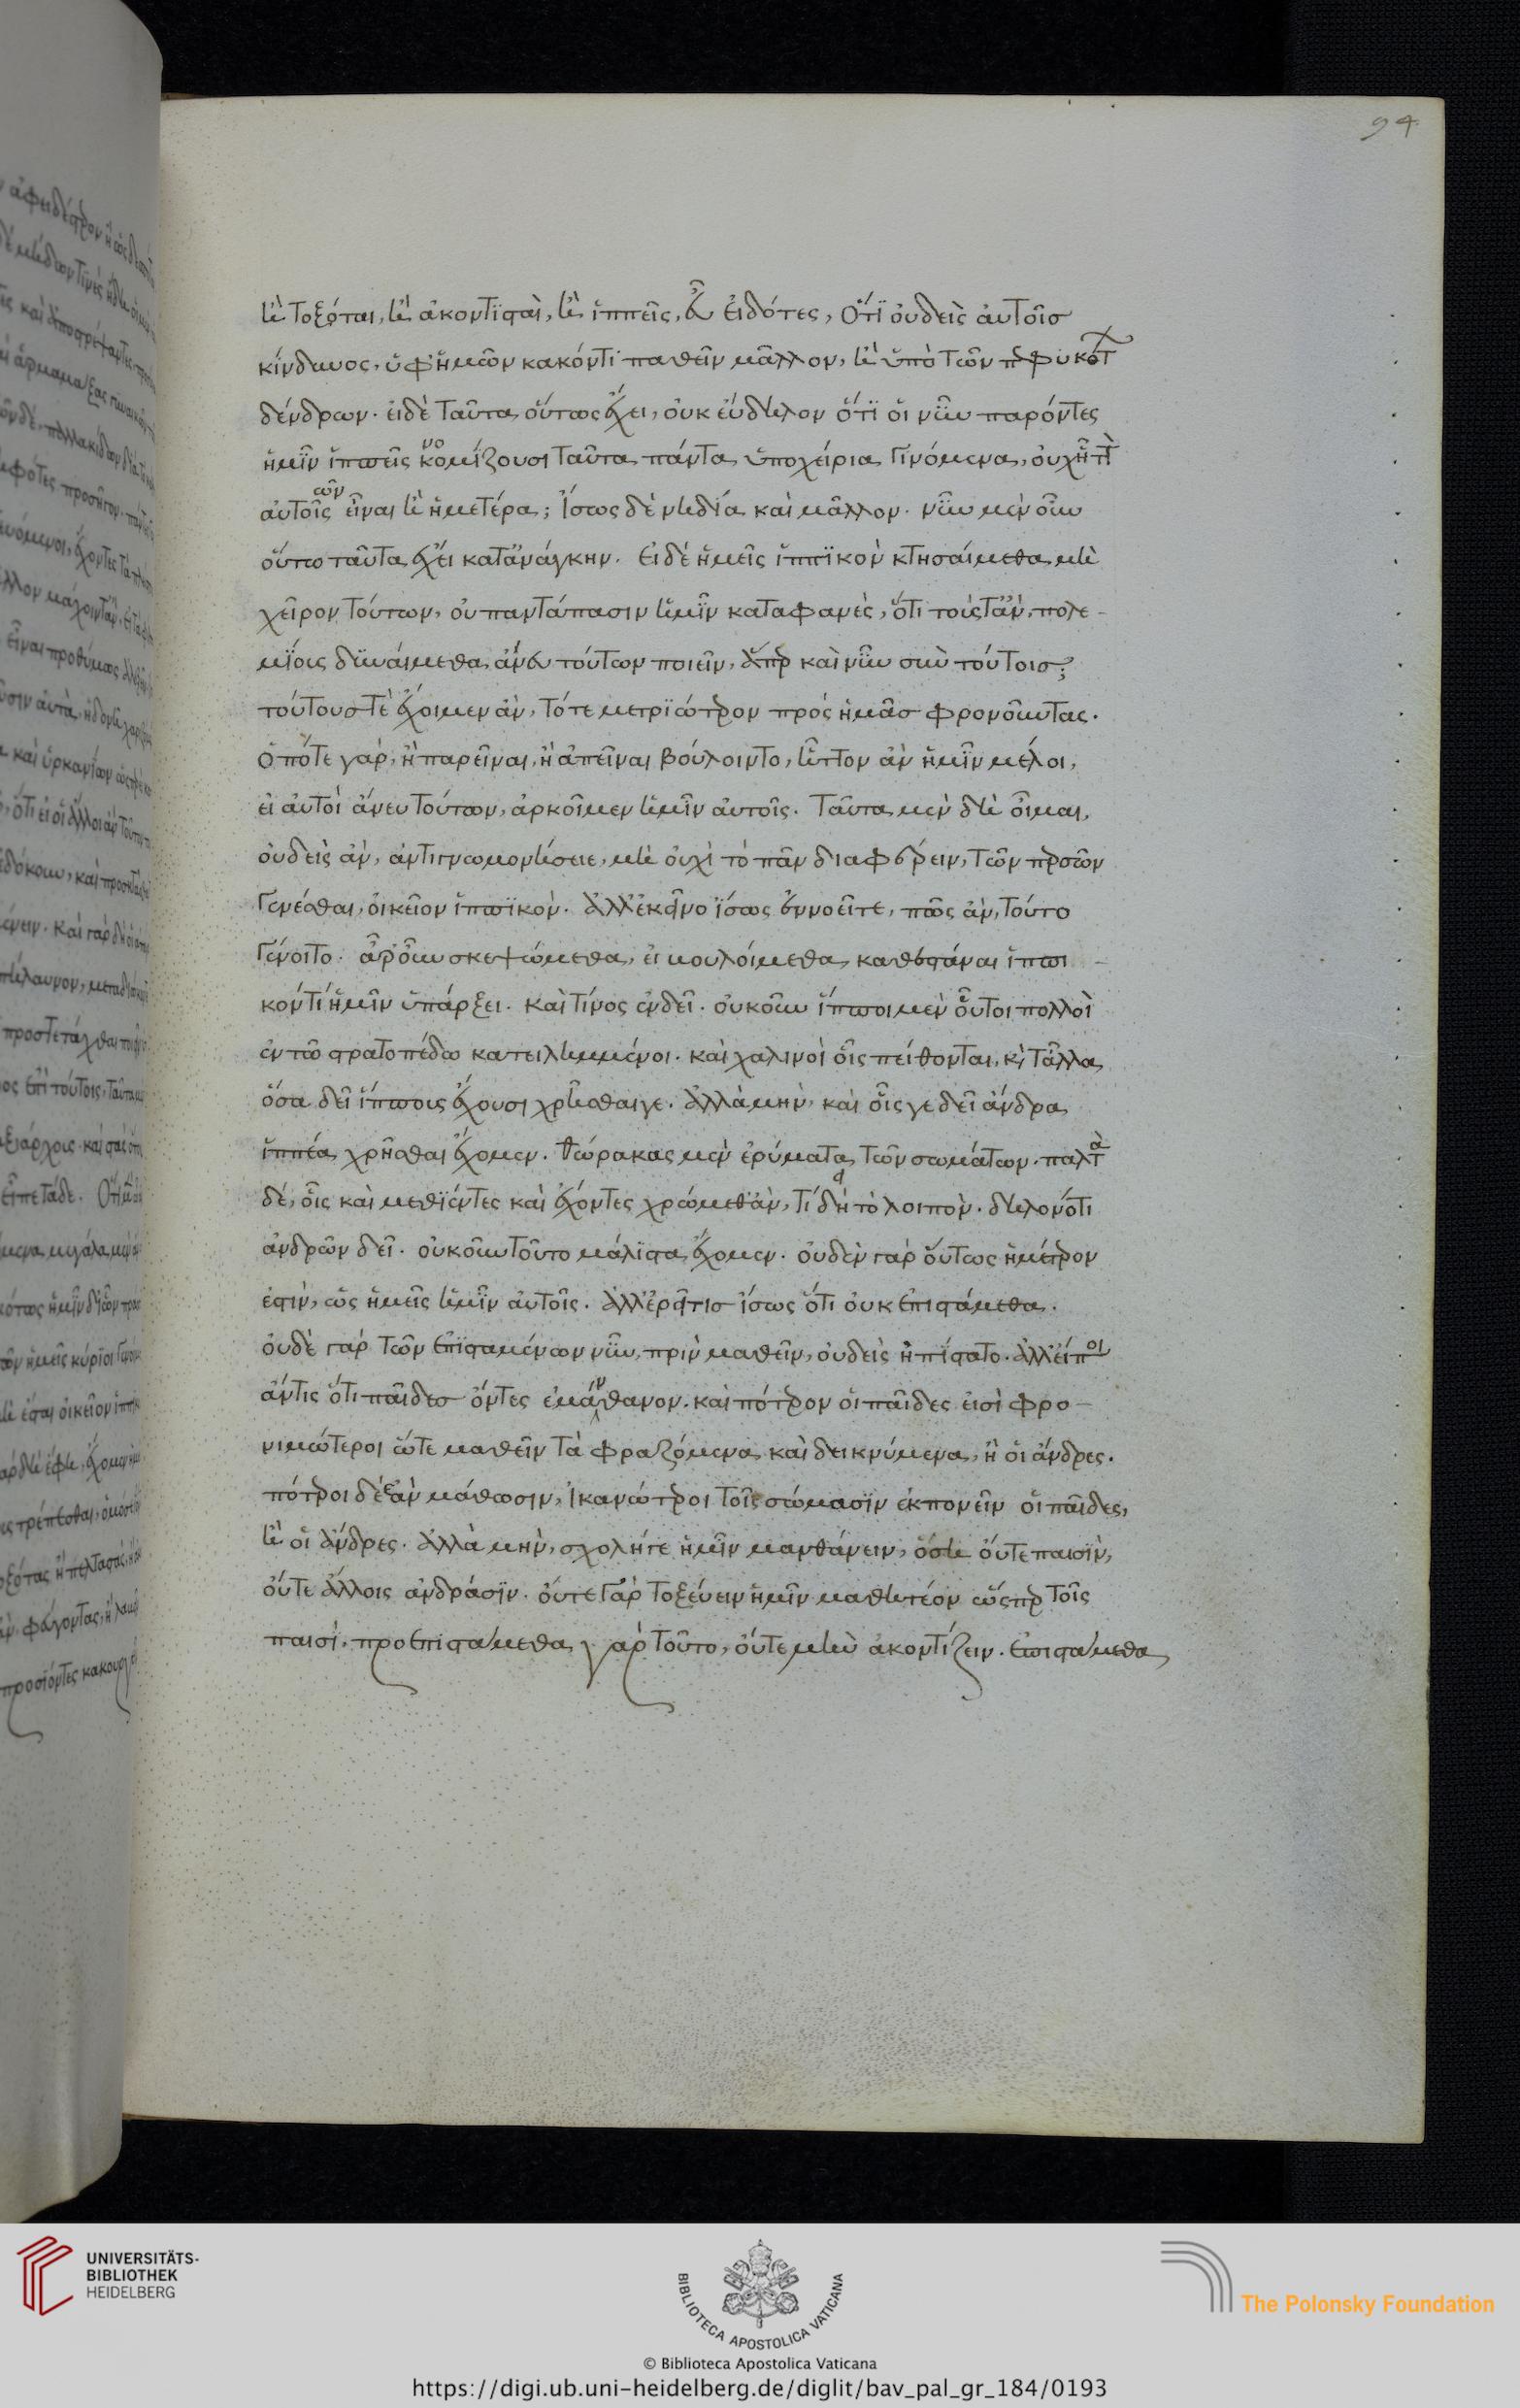 94
ἢ τοξόται, ἢ ἀκοντισταὶ, ἢ ἱππεῖς, εὖ εἰδότες, ὅτι οὐδεὶς αὐτοῖς
κίνδυνος, ὑφ' ἡμῶν κακόν τι παθεῖν μᾶλλον, ἢ ὑπὸ τῶν πεφυκότων
δένδρων. εἰ δὲ ταῦτα οὕτως ἔχει, οὐκ εὔδηλον ὅτι οἱ νῦν παρόντες
ἡμῖν ἱππεῖς νομίζουσι ταῦτα πάντα ὑποχείρια γινόμενα, οὐχ ἧττ
αὐτῶν εἶναι ἢ ἡμετέρα; ἴσως δὲ νηδία καὶ μᾶλλον. νῦν μὲν οὖν
οὕτω ταῦτα ἔχει κατ' ἀνάγκην. εἰ δὲ ἡμεῖς ἱππικὸν κτησαίμεθα μὴ
χεῖρον τούτων, οὐ παντάπασιν ἡμῖν καταφανὲς, ὅτι τούς τ' ἂν, πολε-
μίοις δυνάμεθα ἄνευ τούτων ποιεῖν, ἅπερ καὶ νῦν σὺν τούτοις;
τούτους τὲ ἔχοιμεν ἂν, τότε μετριώτερον πρὸς ἡμᾶς φρονοῦντας.
ὁπότε γὰρ, ἢ παρεῖναι, ἢ ἀπεῖναι βούλοιντο, ἧττον ἂν ἡμῖν μέλοι,
εἰ αὐτοὶ ἄνευ τούτων, ἀρκοῖμεν ἡμῖν αὐτοῖς. ταῦτα μὲν δὴ οἶμαι,
οὐδεὶς ἂν, ἀντιγνωμονήσειε, μὴ οὐχὶ τὸ πᾶν διαφέρειν, τῶν περσῶν
γενέσθαι, οἰκεῖον ἱππικόν. ἀλλ' ἐκεῖνο ἴσως ἐννοεῖτε, πῶς ἂν, τοῦτο
γένοιτο. ἆρ' οὖν σκεψώμεθα, εἰ βουλοίμεθα καθιστάναι ἱππι-
κόν τί ἡμῖν ὑπάρξει. καὶ τίνος ἐνδεῖ. οὐκοῦν ἵπποι μὲν οὗτοι πολλοὶ
ἐν τῶ στρατοπέδω κατειλημμένοι. καὶ χαλινοὶ οἷς πείθονται, κ τἆλλα
ὅσα δεῖ ἵπποις ἔχουσι χρῆσθαι γε. ἀλλὰ μὴν, καὶ οἷς γε δεῖ ἄνδρα
ἱππέα χρῆσθαι ἔχομεν. θώρακας μὲν ἐρύματα τῶν σωμάτων. παλτὰ
δὲ, οἷς καὶ μεθιέντες καὶ ἔχοντες χρώμεθ' ἂν, τί δὴ τὸ λοιπόν. δῆλον ὅτι
ἀνδρῶν δεῖ. οὐκοῦν τοῦτο μάλιστα ἔχομεν. οὐδὲν γὰρ οὕτως ἡμέτερον
ἐστὶν, ὡς ἡμεῖς ἡμῖν αὐτοῖς. ἀλλ' ἐρεῖ τις ἴσως ὅτι οὐκ ἐπιστάμεθα.
οὐδὲ γὰρ τῶν ἐπισταμένων νῦν, πρὶν μαθεῖν, οὐδεὶς ἠπίστατο. ἀλλ' εἴποι
ἄν τις ὅτι παῖδες ὄντες ἐμάνθανον. καὶ πότερον οἱ παῖδες εἰσὶ φρο-
νιμώτεροι ὥστε μαθεῖν τὰ φραζόμενα καὶ δεικνύμενα, ἢ οἱ ἄνδρες.
πότεροι δὲ ἐὰν μάθωσιν, ἱκανώτεροι τοῖς σώμασιν ἐκπονεῖν οἱ παῖδες,
ἢ οἱ ἄνδρες. ἀλλὰ μὴν, σχολή γε ἡμῖν μανθάνειν, ὅση οὔτε παισὶν,
οὔτε ἄλλοις ἀνδράσιν. οὔτε γὰρ τοξεύειν ἡμῖν μαθητέον ὥσπερ τοῖς
παισὶ. προεπιστάμεθα γὰρ τοῦτο, οὔτε μὴν ἀκοντίζειν. ἐπιστάμεθα
UNIVERSITÄTS-
BIBLIOTHEK
HEIDELBERG
BIBLIOTECA APOSTOLICA VATICANA
The Polonsky Foundation
© Biblioteca Apostolica Vaticana
https://digi.ub.uni-heidelberg.de/diglit/bav_pal_gr_184/0193